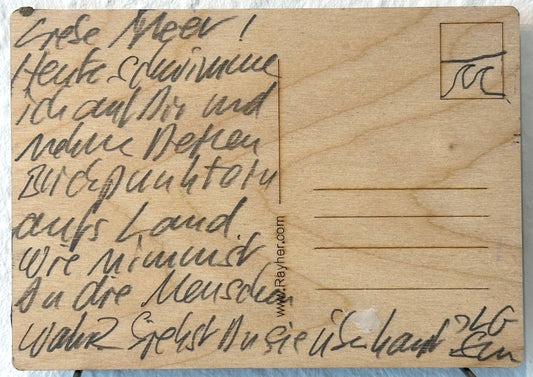 Liebe Meer!
Heute schwimme
ich auf Dir und
nehme Deinen
Blickpunkt ein
aufs Land.
Wie nimmst
Du die Menschen
wahr? Siehst Du sie überhaupt?
LG
www.Rayher.com